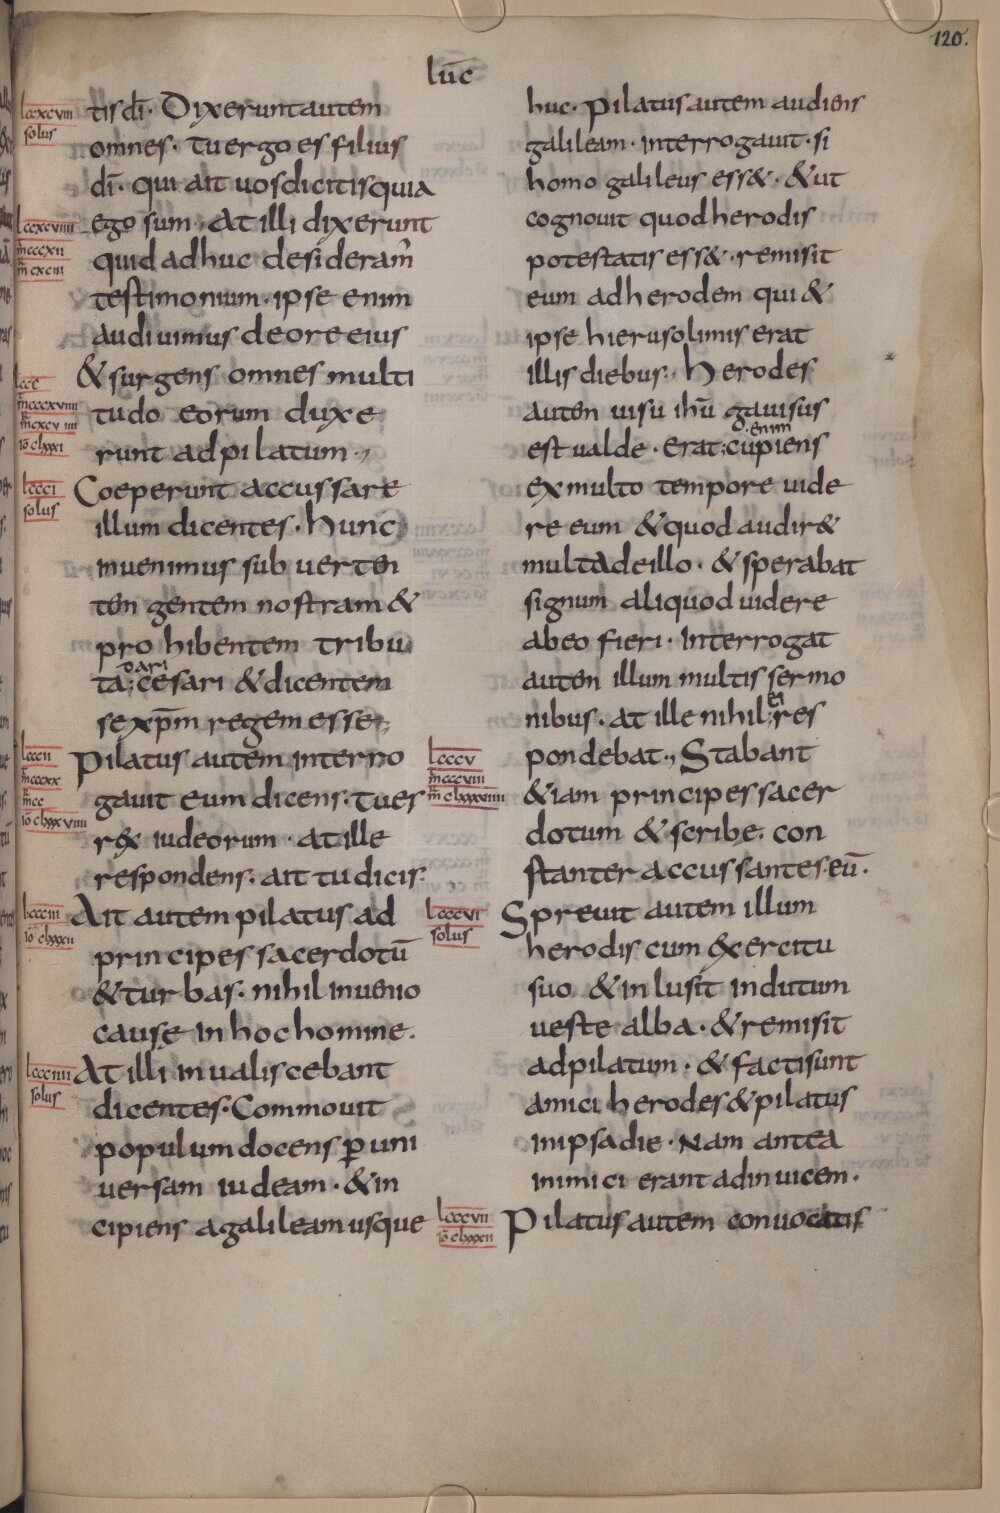 120.
luc̄
lccxcviii
solus
tis dī· Dixerunt autem
omnes· tu ergo es filius
dī· qui ait uos dicitis quia
lccxcviiii
m̄ cccxii
m̄ cxciii
ego sum·, At illi dixerunt
quid adhuc desideram̄
testimonium· ipse enim
audiuimus de ore eius
lccc
m̄ cccxviiii
m̄ cxcviiii
iō clxxxi
& surgens omnes multi
tudo eorum duxe
runt ad pilatum·,
lccci
solus
Coeperunt accussare
illum dicentes· hunc
inuenimus sub uerten
ten gentem nostram &
pro hibentem tribu
dari
ta; cesari & dicentem
se xp̄m regem esse·,
lcccii
m̄ cccxx
m̄ cc
iō clxxxviiii
Pilatus autem interro
gauit eum dicens· tu es
rex iudeorum· at ille
respondens· ait tu dicis·
lccciii
iō clxxxii
Ait autem pilatus ad
principes sacerdotū
& turbas· nihil inuenio
cause in hoc homine.
lccciiii
solus
At illi inualiscebant
dicentes· Commouit
populum docens ꝑ uni
uersam iudeam· & in
cipiens a galileam usque
huc· pilatus autem audiens
galileam· interrogauit· si
homo galileus ess&· & ut
cognouit quod herodis
potestatis ess&· remisit
eum ad herodem qui &
ipse hierusolimis erat
illis diebus·, herodes
auten uisu ihū gauisus
enim
est ualde· erat; cupiens
ex multo tempore uide
re eum & quod audir&
multa de illo· & sperabat
signum aliquod uidere
ab eo fieri· interrogat
auten illum multis sermo
ei
nibus· at ille nihil; res
pondebat·, Stabant
lcccv
m̄ cccviii
m̄ clxxxviiii
& iam principes sacer
dotum & scribe. con
stanter accussantes· eū·
lcccvi
solus
Spreuit autem illum
herodis cum exercitu
suo & inlusit indutum
ueste alba· & remisit
ad pilatum· & facti sunt
amici herodes & pilatus
in ipsa die· Nam antea
inimici erant ad inuicem·
lcccvii
iō clxxxii
Pilatus autem conuocatis